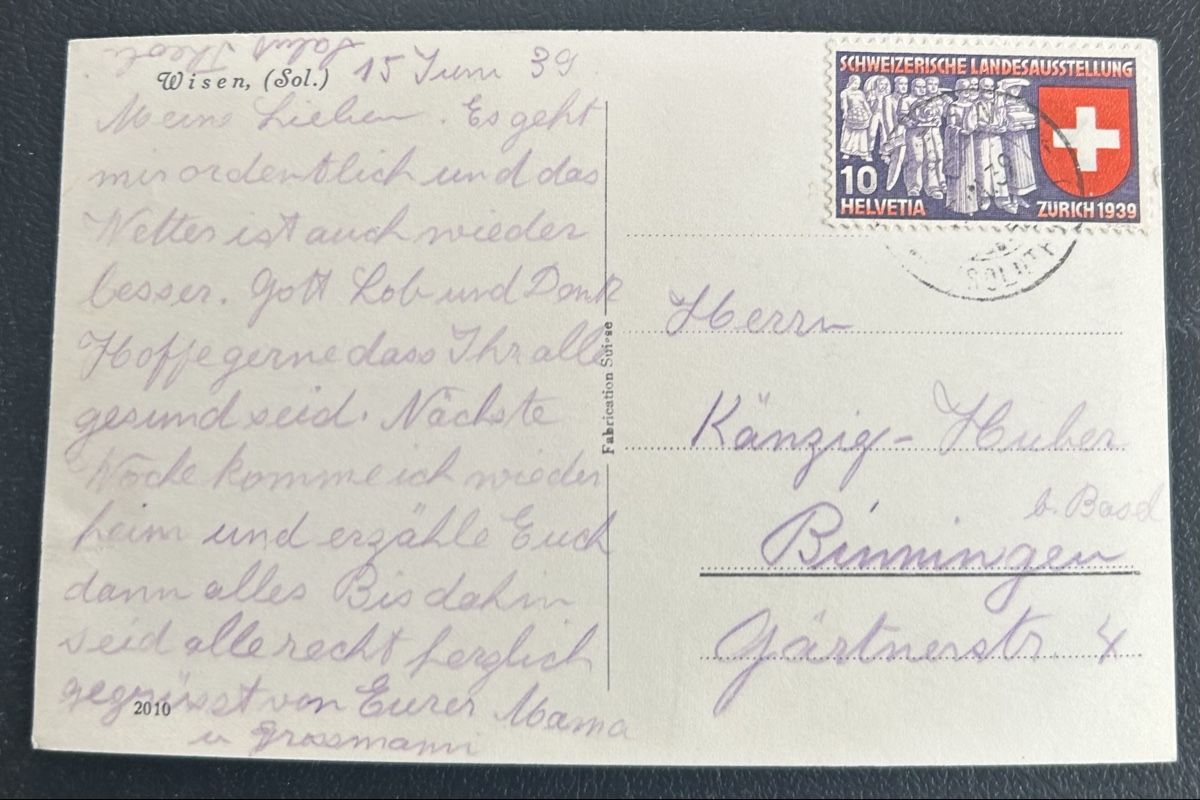 Salus Theoli
Wisen, (Sol.) 15 Juni 39
Meine Lieben. Es geht
mir ordentlich und das
Wetter ist auch wieder
besser. Gott Lob und Dank
Hoffe gerne dass Ihr alle
gesund seid. Nächste
Woche komme ich wieder
heim und erzähle Euch
dann alles Bis dahin
seid alle recht herzlich
gegrüsst von Eurer Mama
u Grossmami
2010
Fabrication Suisse
SCHWEIZERISCHE LANDESAUSSTELLUNG
10
HELVETIA
ZÜRICH 1939
Herrn
Känzig-Huber
b. Basel
Binningen
Gärtnerstr. 4